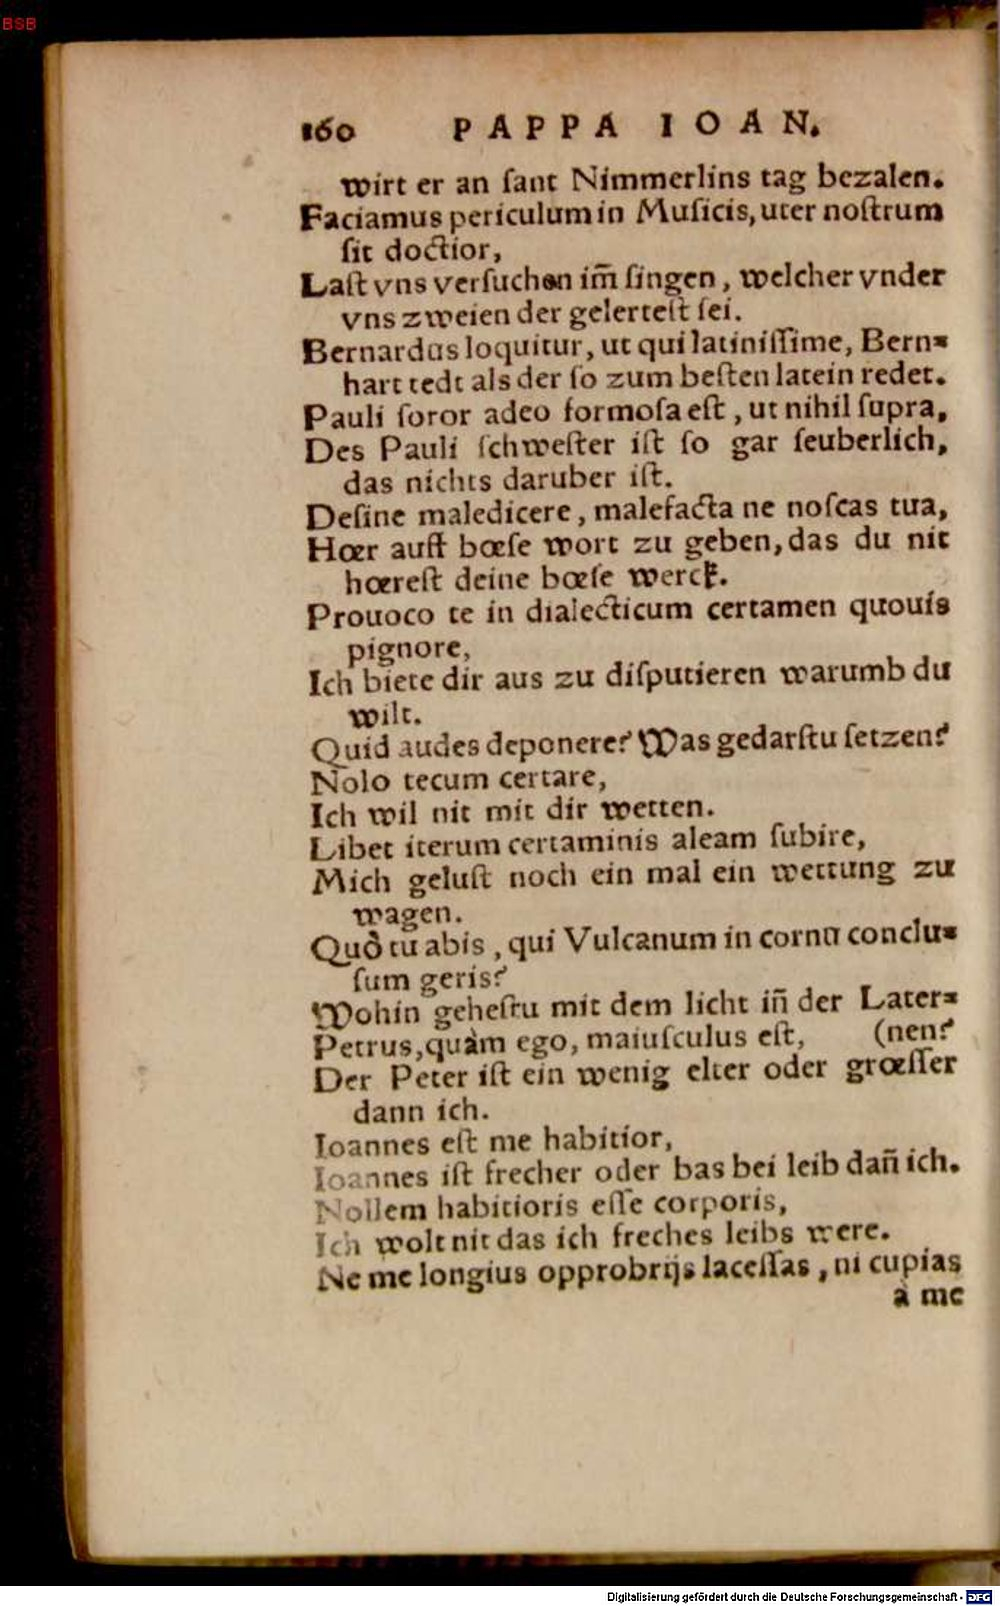 BSB
160 PAPPA IOAN.
wirt er an ſant Nimmerlins tag bezalen.
Faciamus periculum in Muſicis, uter noſtrum
ſit doctior,
Laſt vns verſuchen im̃ ſingen, welcher vnder
vns zweien der gelerteſt ſei.
Bernardus loquitur, ut qui latiniſſime, Bern⸗
hart redt als der ſo zum beſten latein redet.
Pauli ſoror adeo formoſa eſt, ut nihil ſupra,
Des Pauli ſchweſter iſt ſo gar ſeuberlich,
das nichts daruber iſt.
Deſine maledicere, malefacta ne noſcas tua,
Hœr auff bœſe wort zu geben, das du nit
hœreſt deine bœſe werck.
Prouoco te in dialecticum certamen quouis
pignore,
Ich biete dir aus zu diſputieren warumb du
wilt.
Quid audes deponere? Was gedarſtu ſetzen?
Nolo tecum certare,
Ich wil nit mit dir wetten.
Libet iterum certaminis aleam ſubire,
Mich geluſt noch ein mal ein wettung zu
wagen.
Quò tu abis, qui Vulcanum in cornu conclu⸗
ſum geris?
Wohin geheſtu mit dem licht iñ der Later⸗
Petrus, quàm ego, maiuſculus eſt, (nen?
Der Peter iſt ein wenig elter oder grœſſer
dann ich.
Ioannes eſt me habitior,
Ioannes iſt frecher oder bas bei leib dañ ich.
Nollem habitioris eſſe corporis,
Ich wolt nit das ich freches leibs were.
Ne me longius opprobrijs laceſſas, ni cupias
à me
Digitalisierung gefördert durch die Deutsche Forschungsgemeinschaft - DFG